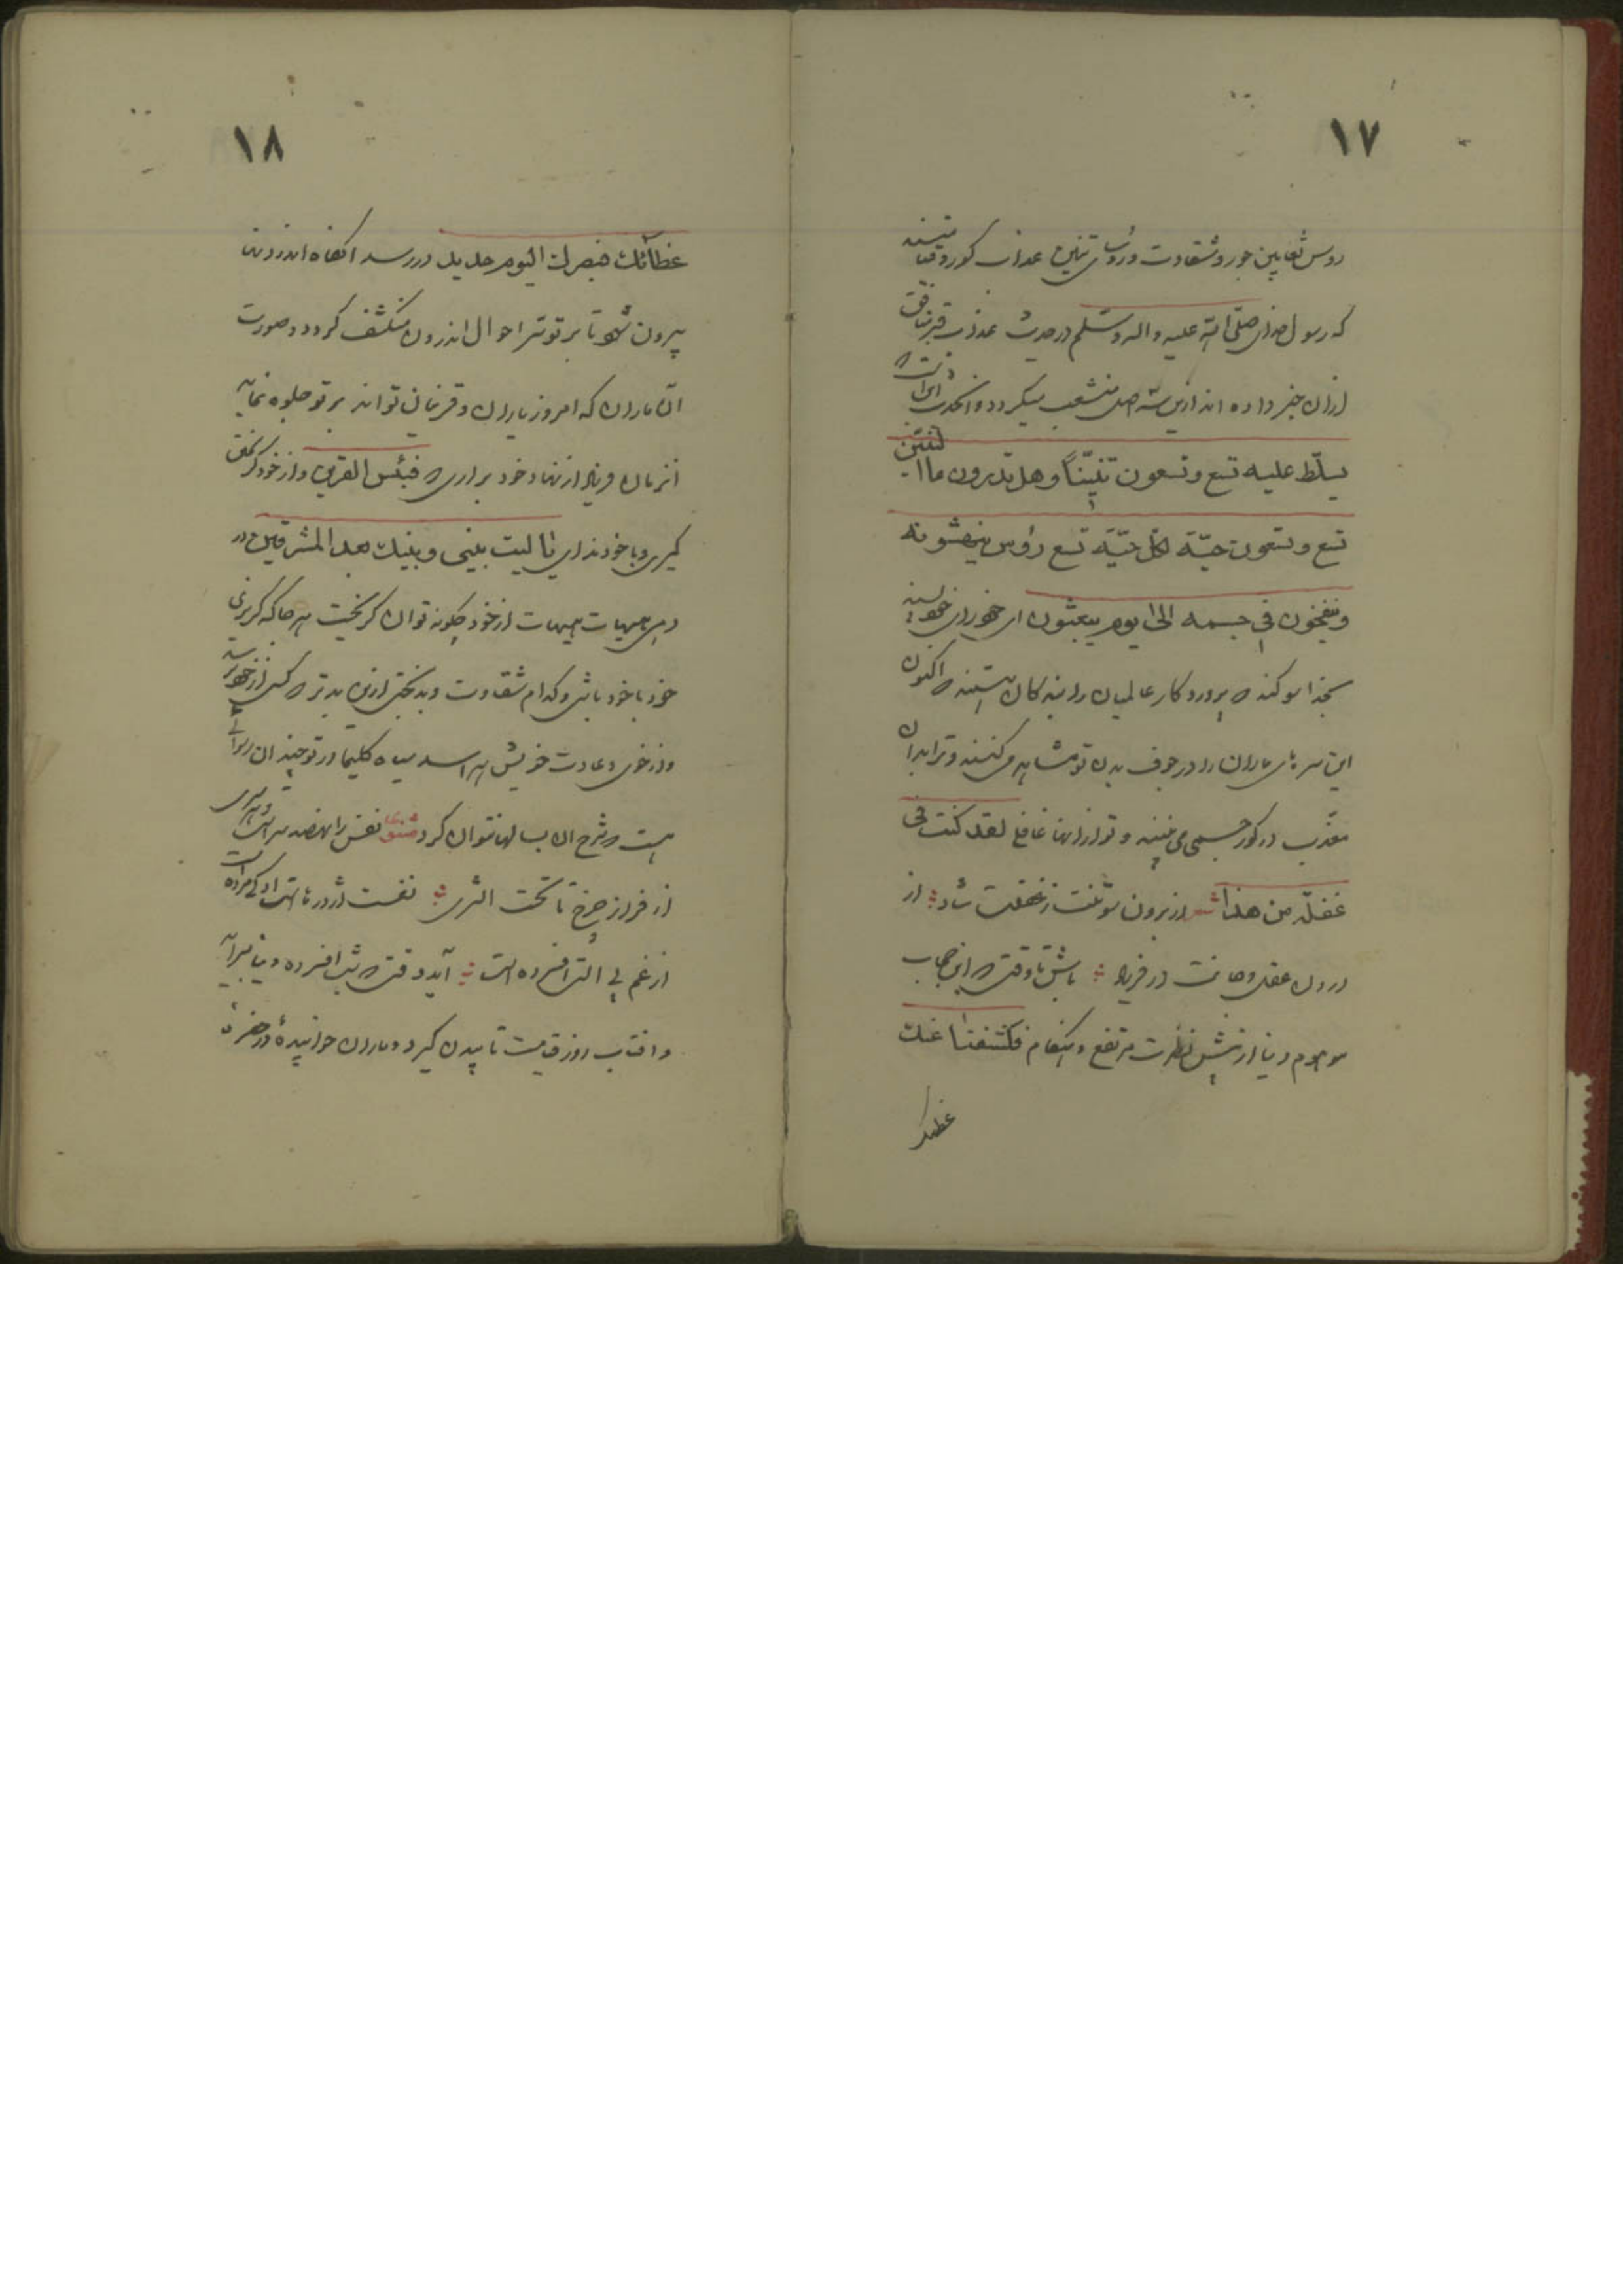 ۱۷
روس ثعابین جور و شقاوت و رؤسای تنین عذاب کور و قیامتند
که رسول خدای صلّی الله علیه واله وسلّم در حدیث عذاب قبر منافق
ازان خبر داده اند ازین سه اصل منشعب میگردد و انحدیث
یسلّط علیه تسع وتسعون تنّیناً وهل تدرون ما التنّین
تسع وتسعون حیّة لکل حیّة تسع رؤس ینهشونه
وینفخون فی جسمه الی یوم یبعثون ای
بخدا سوکند که پروردکار عالمیان را بندکان هستند که اکنون
این سرهای ماران را در جوف بدن تو مشاهده میکنند و ترا بدان
معذّب در کور جسمی می بینند و تو ازانها غافل لقد کنت فی
غفلة من هذا از برون سو تنت زغفلت شاد از
درون عقل و جانت در فریاد باش تا وقتی که این حجاب
موهوم دنیا از پیش نظرت مرتفع و هنکام فکشفنا عنک
غطائک
۱۸
غطائک فبصرک الیوم حدید در رسد انکاه اندرونت
بیرون شود تا بر تو سر احوال اندرون منکشف کردد و صورت
آن ماران که امروز یاران و قرینان تواند بر تو جلوه نماید
انزمان فریاد از نهاد خود براری که فبئس القرین و از خود
کیری و با خود ندای یا لیت بینی وبینک بعد المشرقین در
دهی هیهات هیهات از خود چکونه توان کریخت هر جا که کریزی
خود با خود باشی و کدام شقاوت و بدبختی ازین بدتر که کسی از خود
و از خوی و عادت خویش هراسد سیاه کلیما در تو چندان رسوائی
هست که شرح ان بسالها نتوان کرد مثنوی نفس را هفصد سر است و هر سری
از فراز چرخ تا تحت الثری نفست اژدرهاست او کی مرده است
از غم بی آلتی افسرده است آید وقتی که شب افسرده دنیا بسر آید
و افتاب روز قیامت تابیدن کیرد و ماران خوابیده در حفره